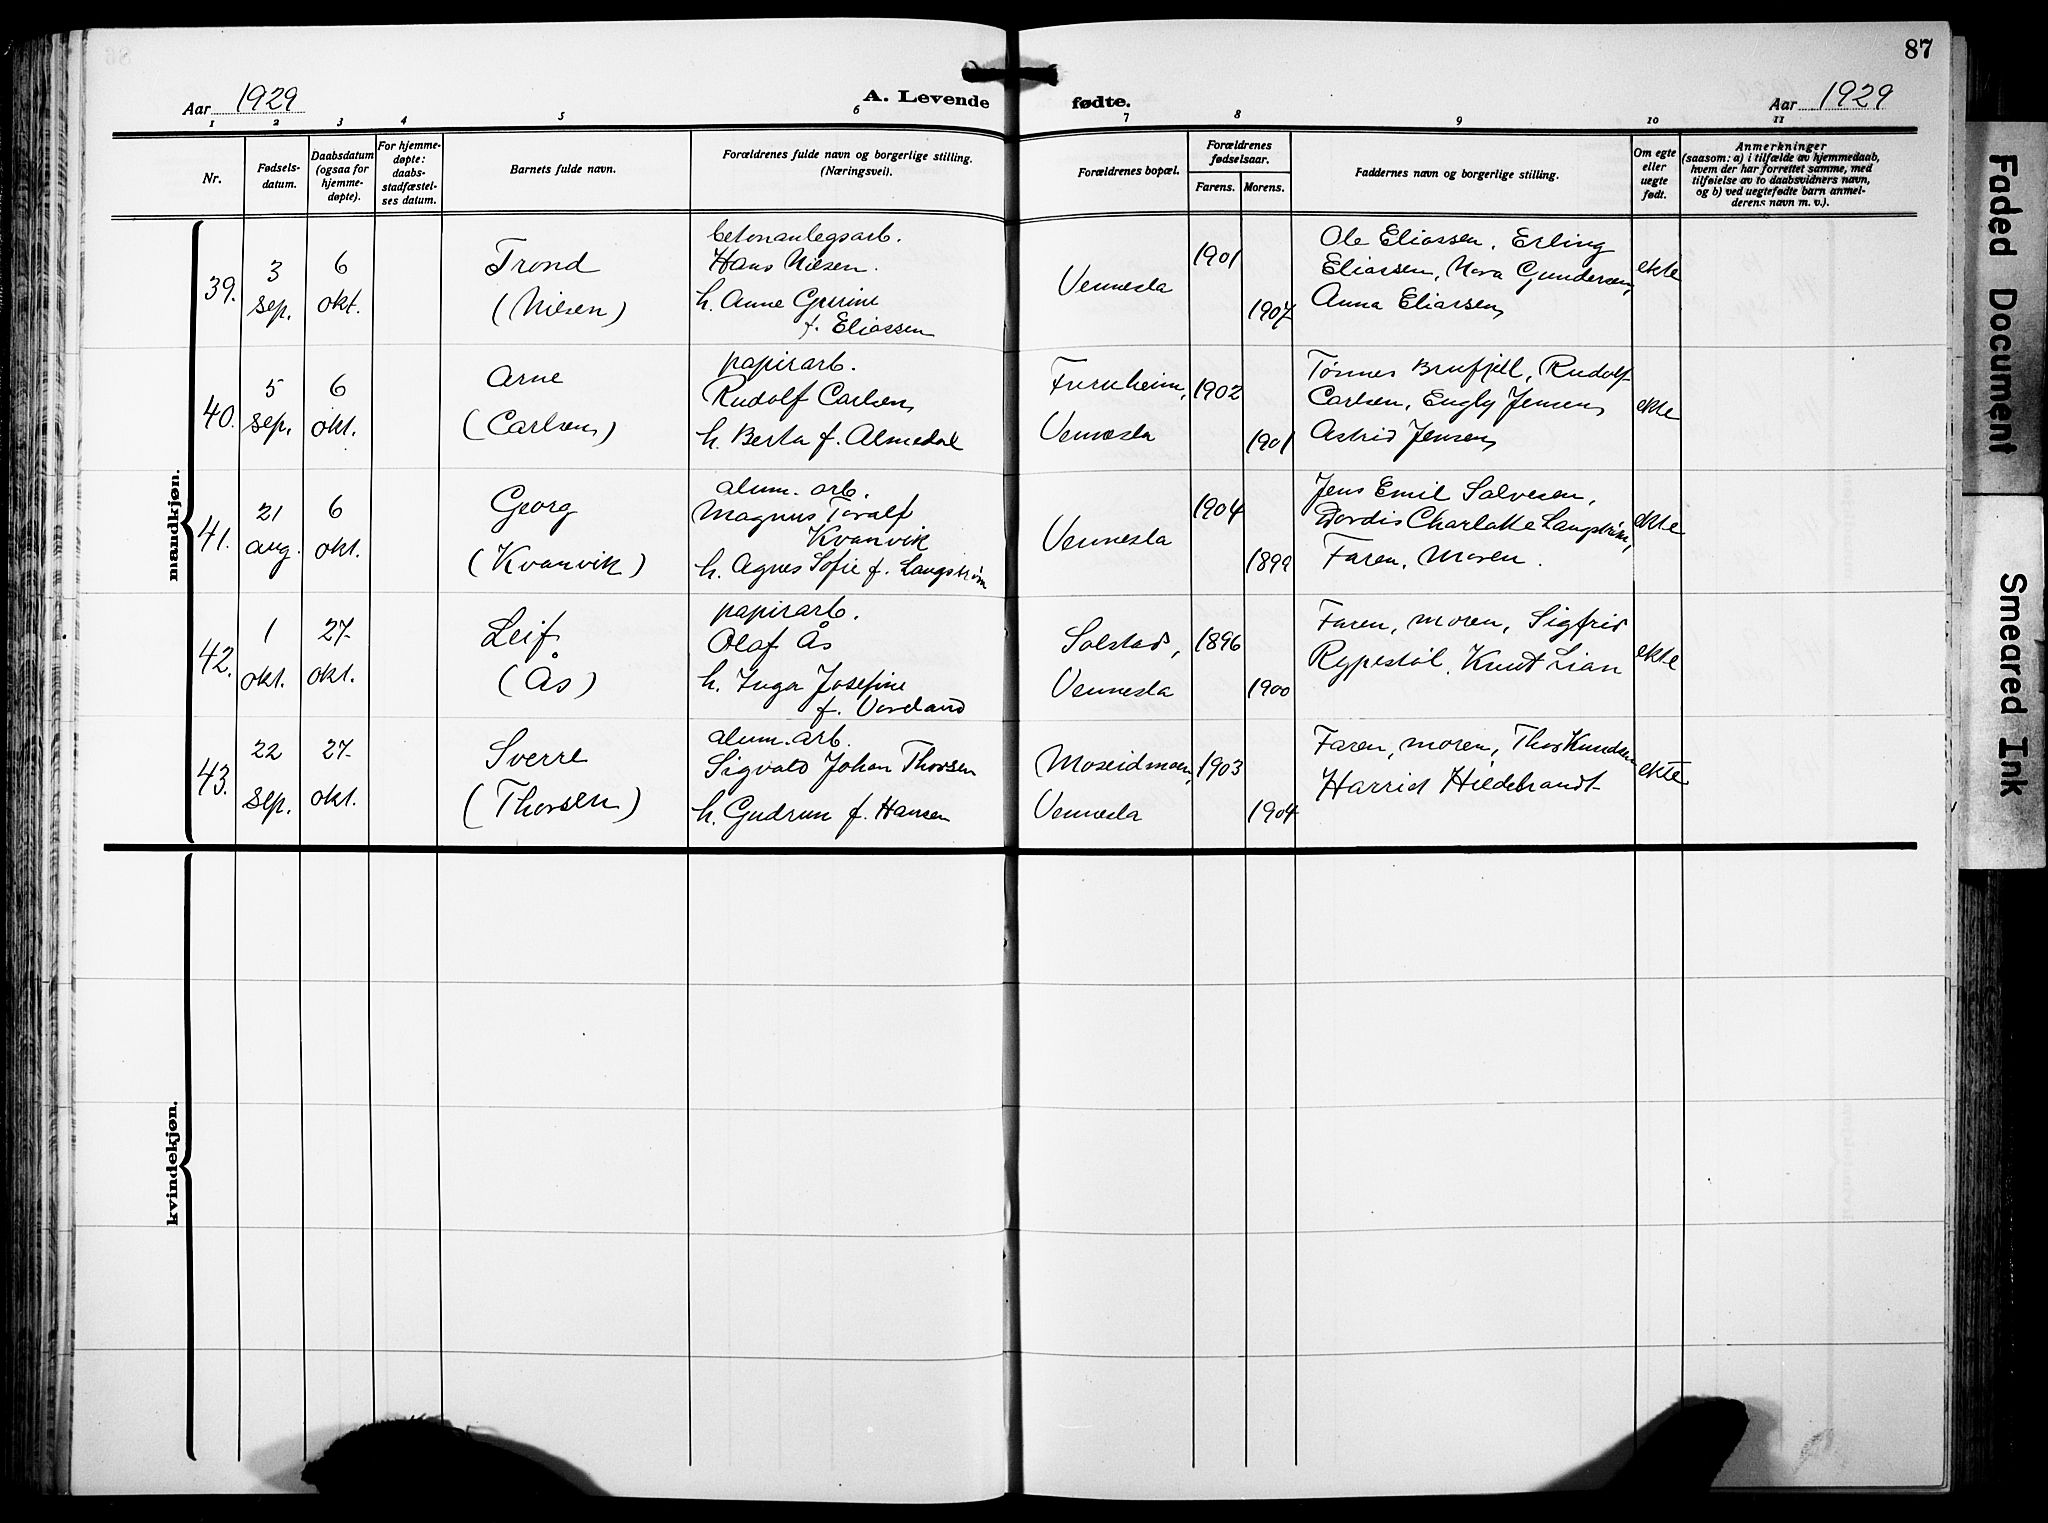 87
Aar 1929
A. Levende fødte.
Aar 1929
1 2 3 4 5 6 7 8 9 10 11
Nr.
Fødsels-
datum.
Daabsdatum
(ogsaa for
hjemme-
døpte).
For hjemme-
døpte:
daabs-
stadfæstel-
ses datum.
Barnets fulde navn.
Forældrenes fulde navn og borgerlige stilling.
(Næringsvei).
Forældrenes bopæl.
Forældrenes
fødselsaar.
Farens. Morens.
Faddernes navn og borgerlige stilling.
Om egte
eller
uegte
født.
Anmerkninger
(saasom: a) i tilfælde av hjemmedaab,
hvem der har forrettet samme, med
tilføielse av to daabsvidners navn,
og b) ved uegtefødte barn anmel-
derens navn m. v.).
mandkjøn.
39.
3
sep.
6
okt.
Trond
(Nilsen)
betonanlegsarb.
Hans Nilsen.
h. Anne Gurine
f. Eliassen
Vennesla
1901
1907
Ole Eliassen, Erling
Eliassen, Nora Gundersen,
Anna Eliassen
ekte
40.
5
sep.
6
okt.
Arne
(Carlsen)
papirarb.
Rudolf Carlsen
h. Berta f. Almedal
Furuheim,
Vennesla
1902
1901
Tønnes Brufjell, Rudolf
Carlsen, Engly Jensen
Astrid Jensen
ekte
41.
21
aug.
6
okt.
Georg
(Kvanvik)
alum. arb.
Magnus Toralf
Kvanvik
h. Agnes Sofie f. Langstrøm
Vennesla
1904
1899
Jens Emil Salvesen,
Dordis Charlotte Langstrøm,
Faren, Moren.
ekte
42.
1
okt.
27
okt.
Leif
(Ås)
papirarb.
Olaf Ås
h. Inga Josefine
f. Vordand
Solstad,
Vennesla
1896
1900
Faren, moren, Sigfrid
Rypestøl, Knut Lian
ekte
43.
22
sep.
27
okt.
Sverre
(Thorsen)
alum. arb.
Sigvald Johan Thorsen
h. Gudrun f. Hansen
Moseidmoen,
Vennesla
1903
1904
Faren, moren, Thor Knudsen
Harriet Hildebrandt
ekte
kvindekjøn.
Faded Document
Smeared Ink